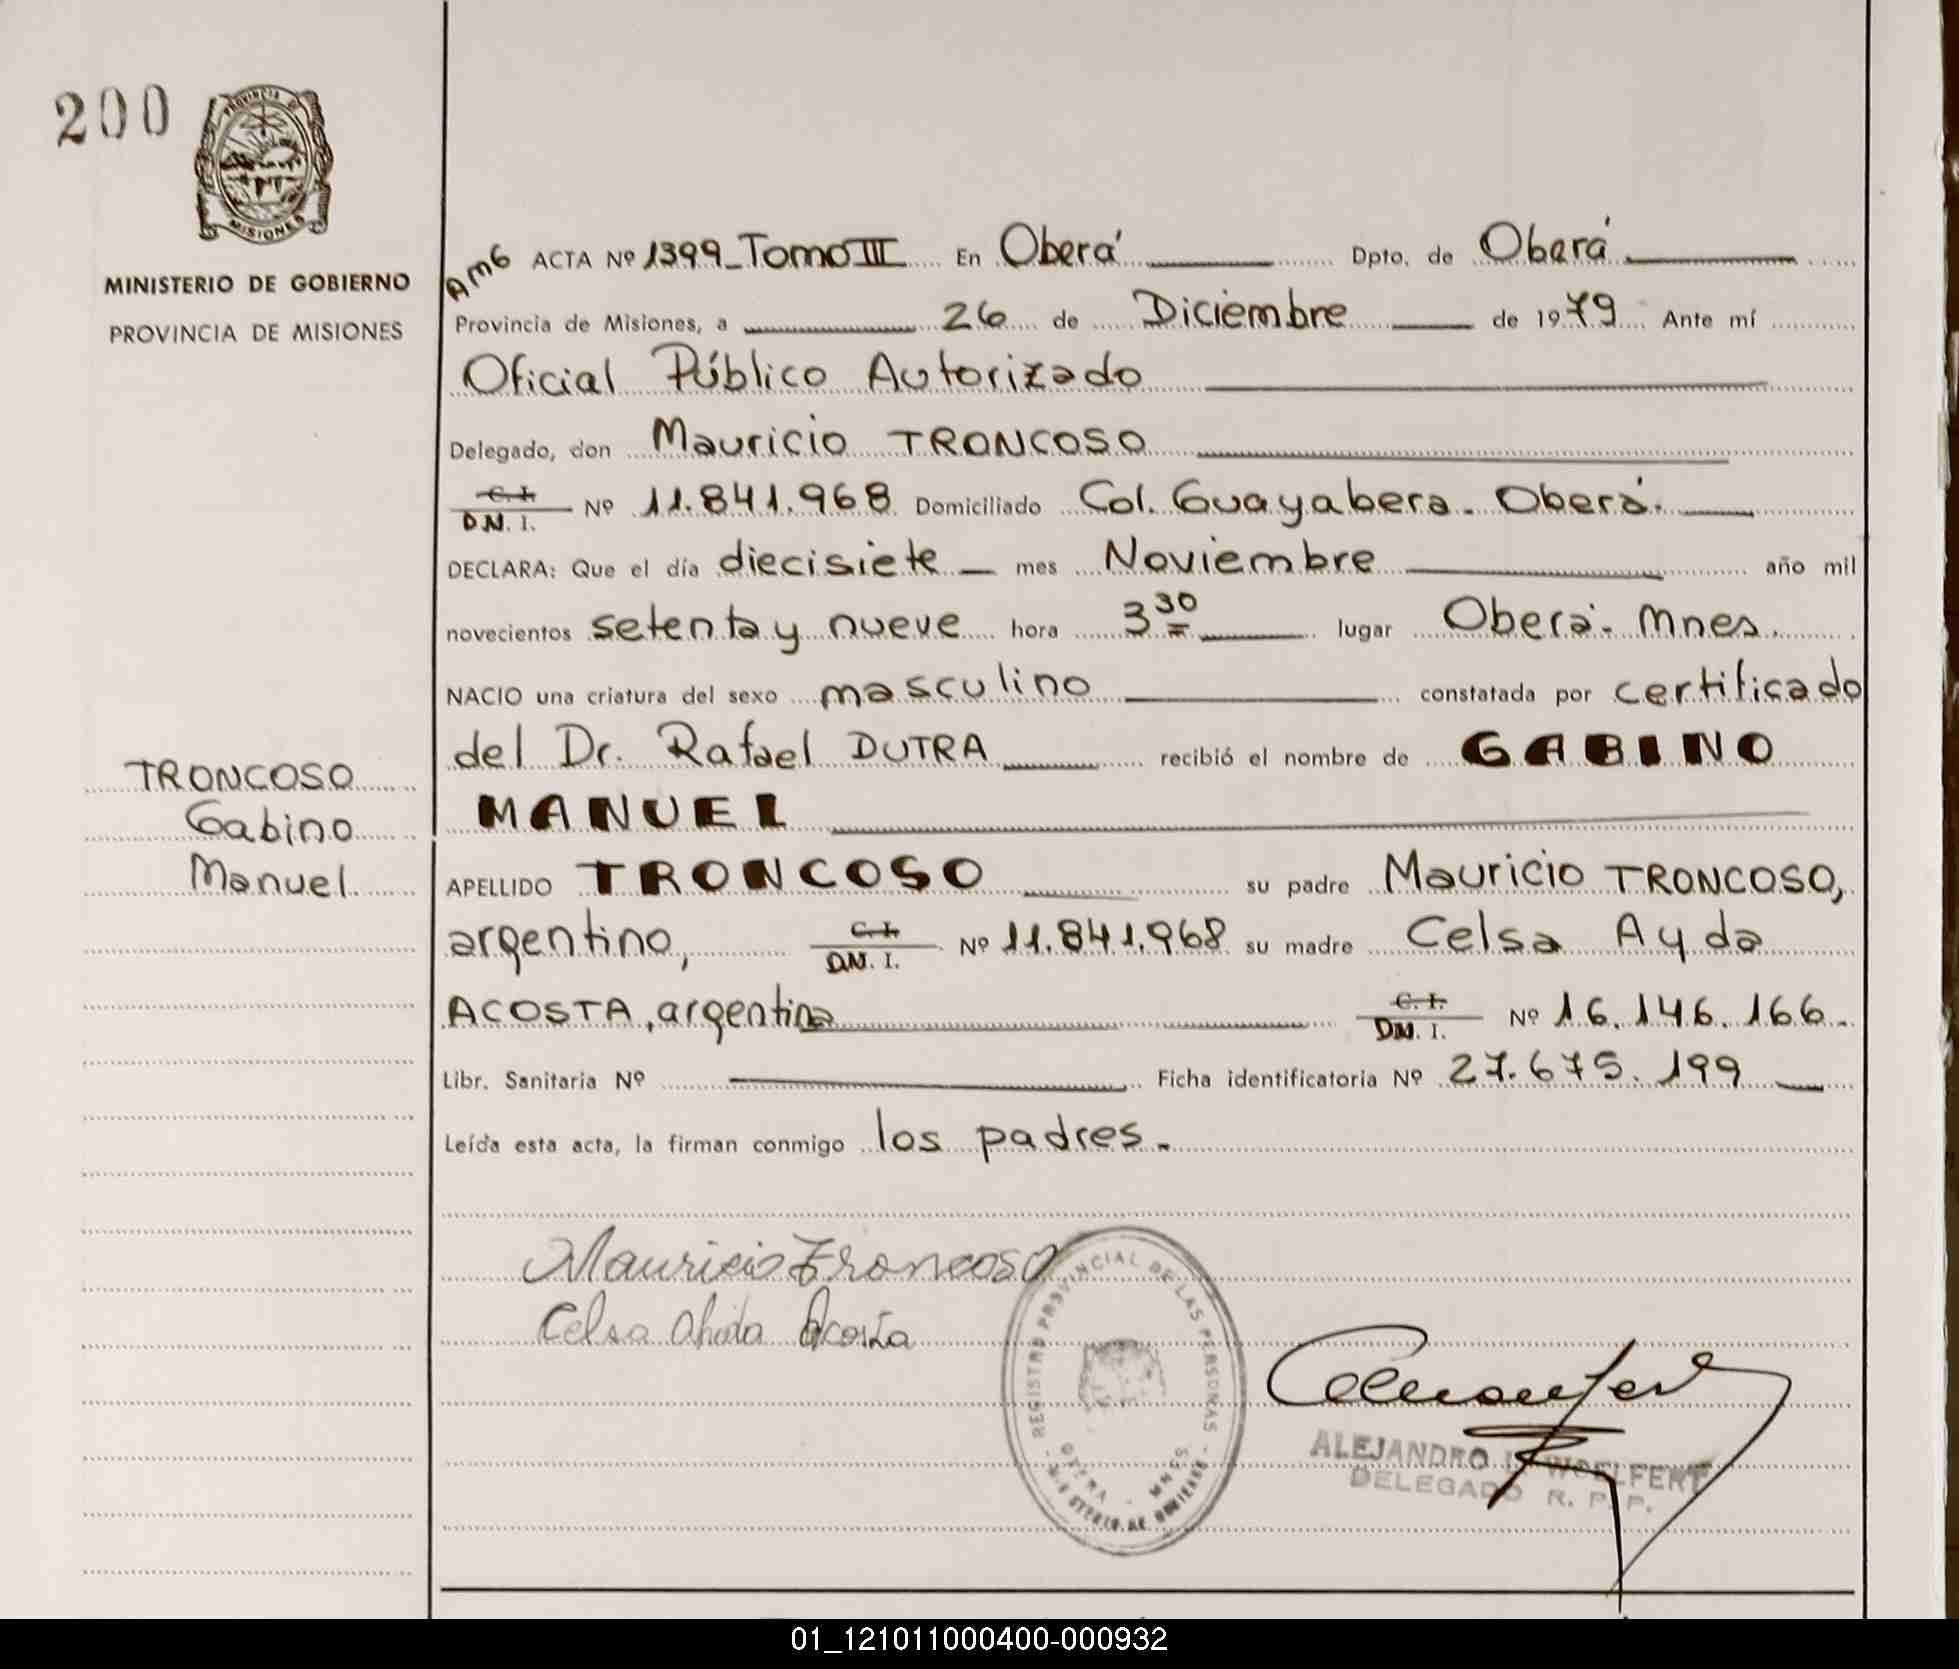 200
PROVINCIA DE
MISIONES
MINISTERIO DE GOBIERNO
PROVINCIA DE MISIONES
Am6 ACTA Nº 1399_Tomo III En Oberá Dpto. de Oberá
Provincia de Misiones, a 26 de Diciembre de 1979 Ante mí
Oficial Público Autorizado
Delegado, don Mauricio TRONCOSO
C. I.
D.N. I. Nº 11.841.968 Domiciliado Col. Guayabera. Oberá.
DECLARA: Que el día diecisiete mes Noviembre año mil
novecientos setenta y nueve hora 3 30 lugar Oberá. Mnes.
NACIO una criatura del sexo masculino constatada por certificado
del Dr. Rafael DUTRA recibió el nombre de GABINO
MANUEL
TRONCOSO
Gabino
Manuel.
APELLIDO TRONCOSO su padre Mauricio TRONCOSO,
argentino, C. I. D.N. I. Nº 11.841.968 su madre Celsa Ayda
ACOSTA, argentina C. I. D.N. I. Nº 16.146.166.
Libr. Sanitaria Nº Ficha identificatoria Nº 27.675.199
Leída esta acta, la firman conmigo los padres.
Mauricio Troncoso
Celsa Ahida Acosta
REGISTRO PROVINCIAL DE LAS PERSONAS
OBERA - MNES
MINISTERIO DE GOBIERNO
ALEJANDRO WOELFERT
DELEGADO R. P. P.
01_121011000400-000932